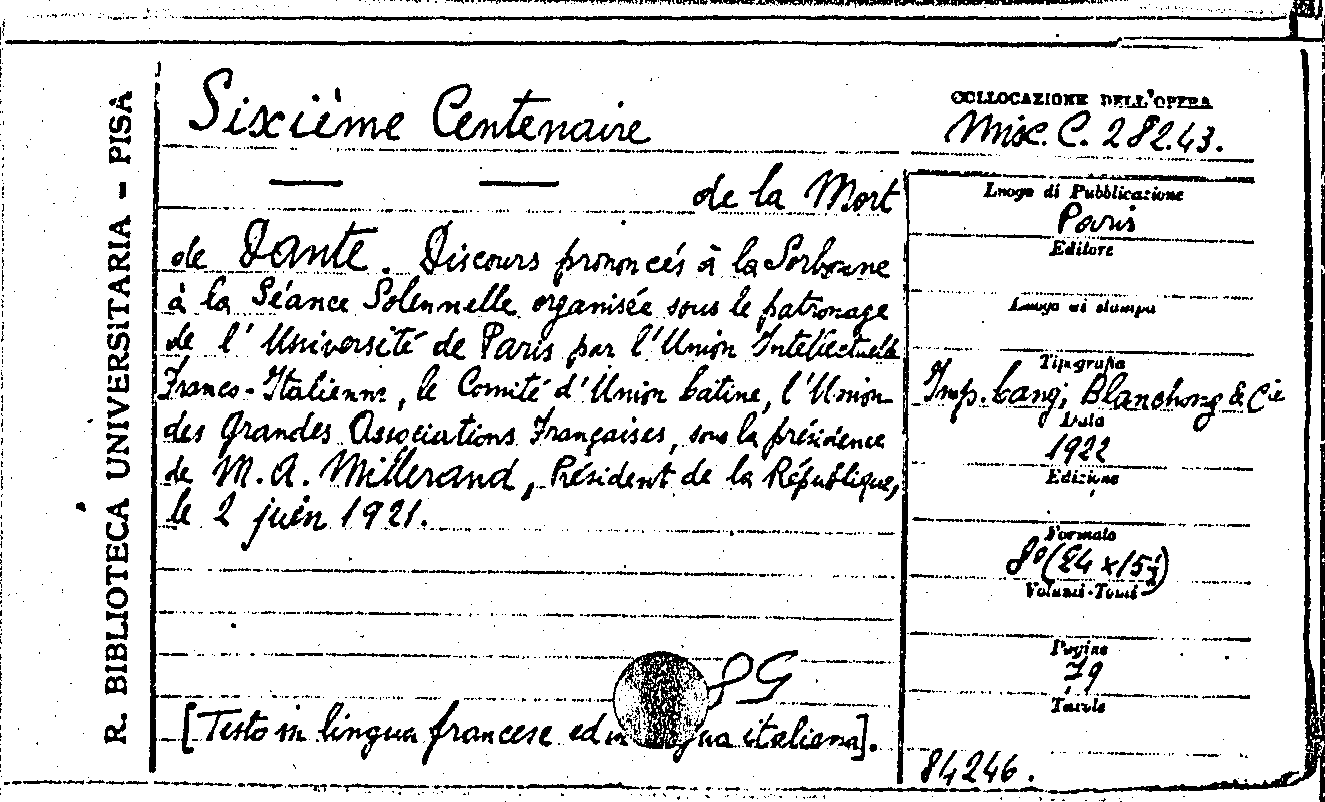 R. BIBLIOTECA UNIVERSITARIA - PISA
Sixième Centenaire
— — de la Mort
de Dante. Discours prononcés à la Sorbonne
à la Séance Solennelle organisée sous le patronage
de l'Université de Paris par l'Union Intellectuelle
Franco-Italienne, le Comité d'Union Latine, l'Union
des Grandes Associations Françaises, sous la présidence
de M. A. Millerand, Président de la République,
le 2 juin 1921.
PG
[Testo in lingua francese ed in lingua italiana].
COLLOCAZIONE DELL'OPERA
Misc. C. 282.43.
Luogo di Pubblicazione
Paris
Editore
Luogo di stampa
Tipografia
Imp. Lang, Blanchong & Cie
Data
1922
Edizione
Formato
8º (24 x 15½)
Volumi-Tomi
Pagine
79
Tavole
84246.